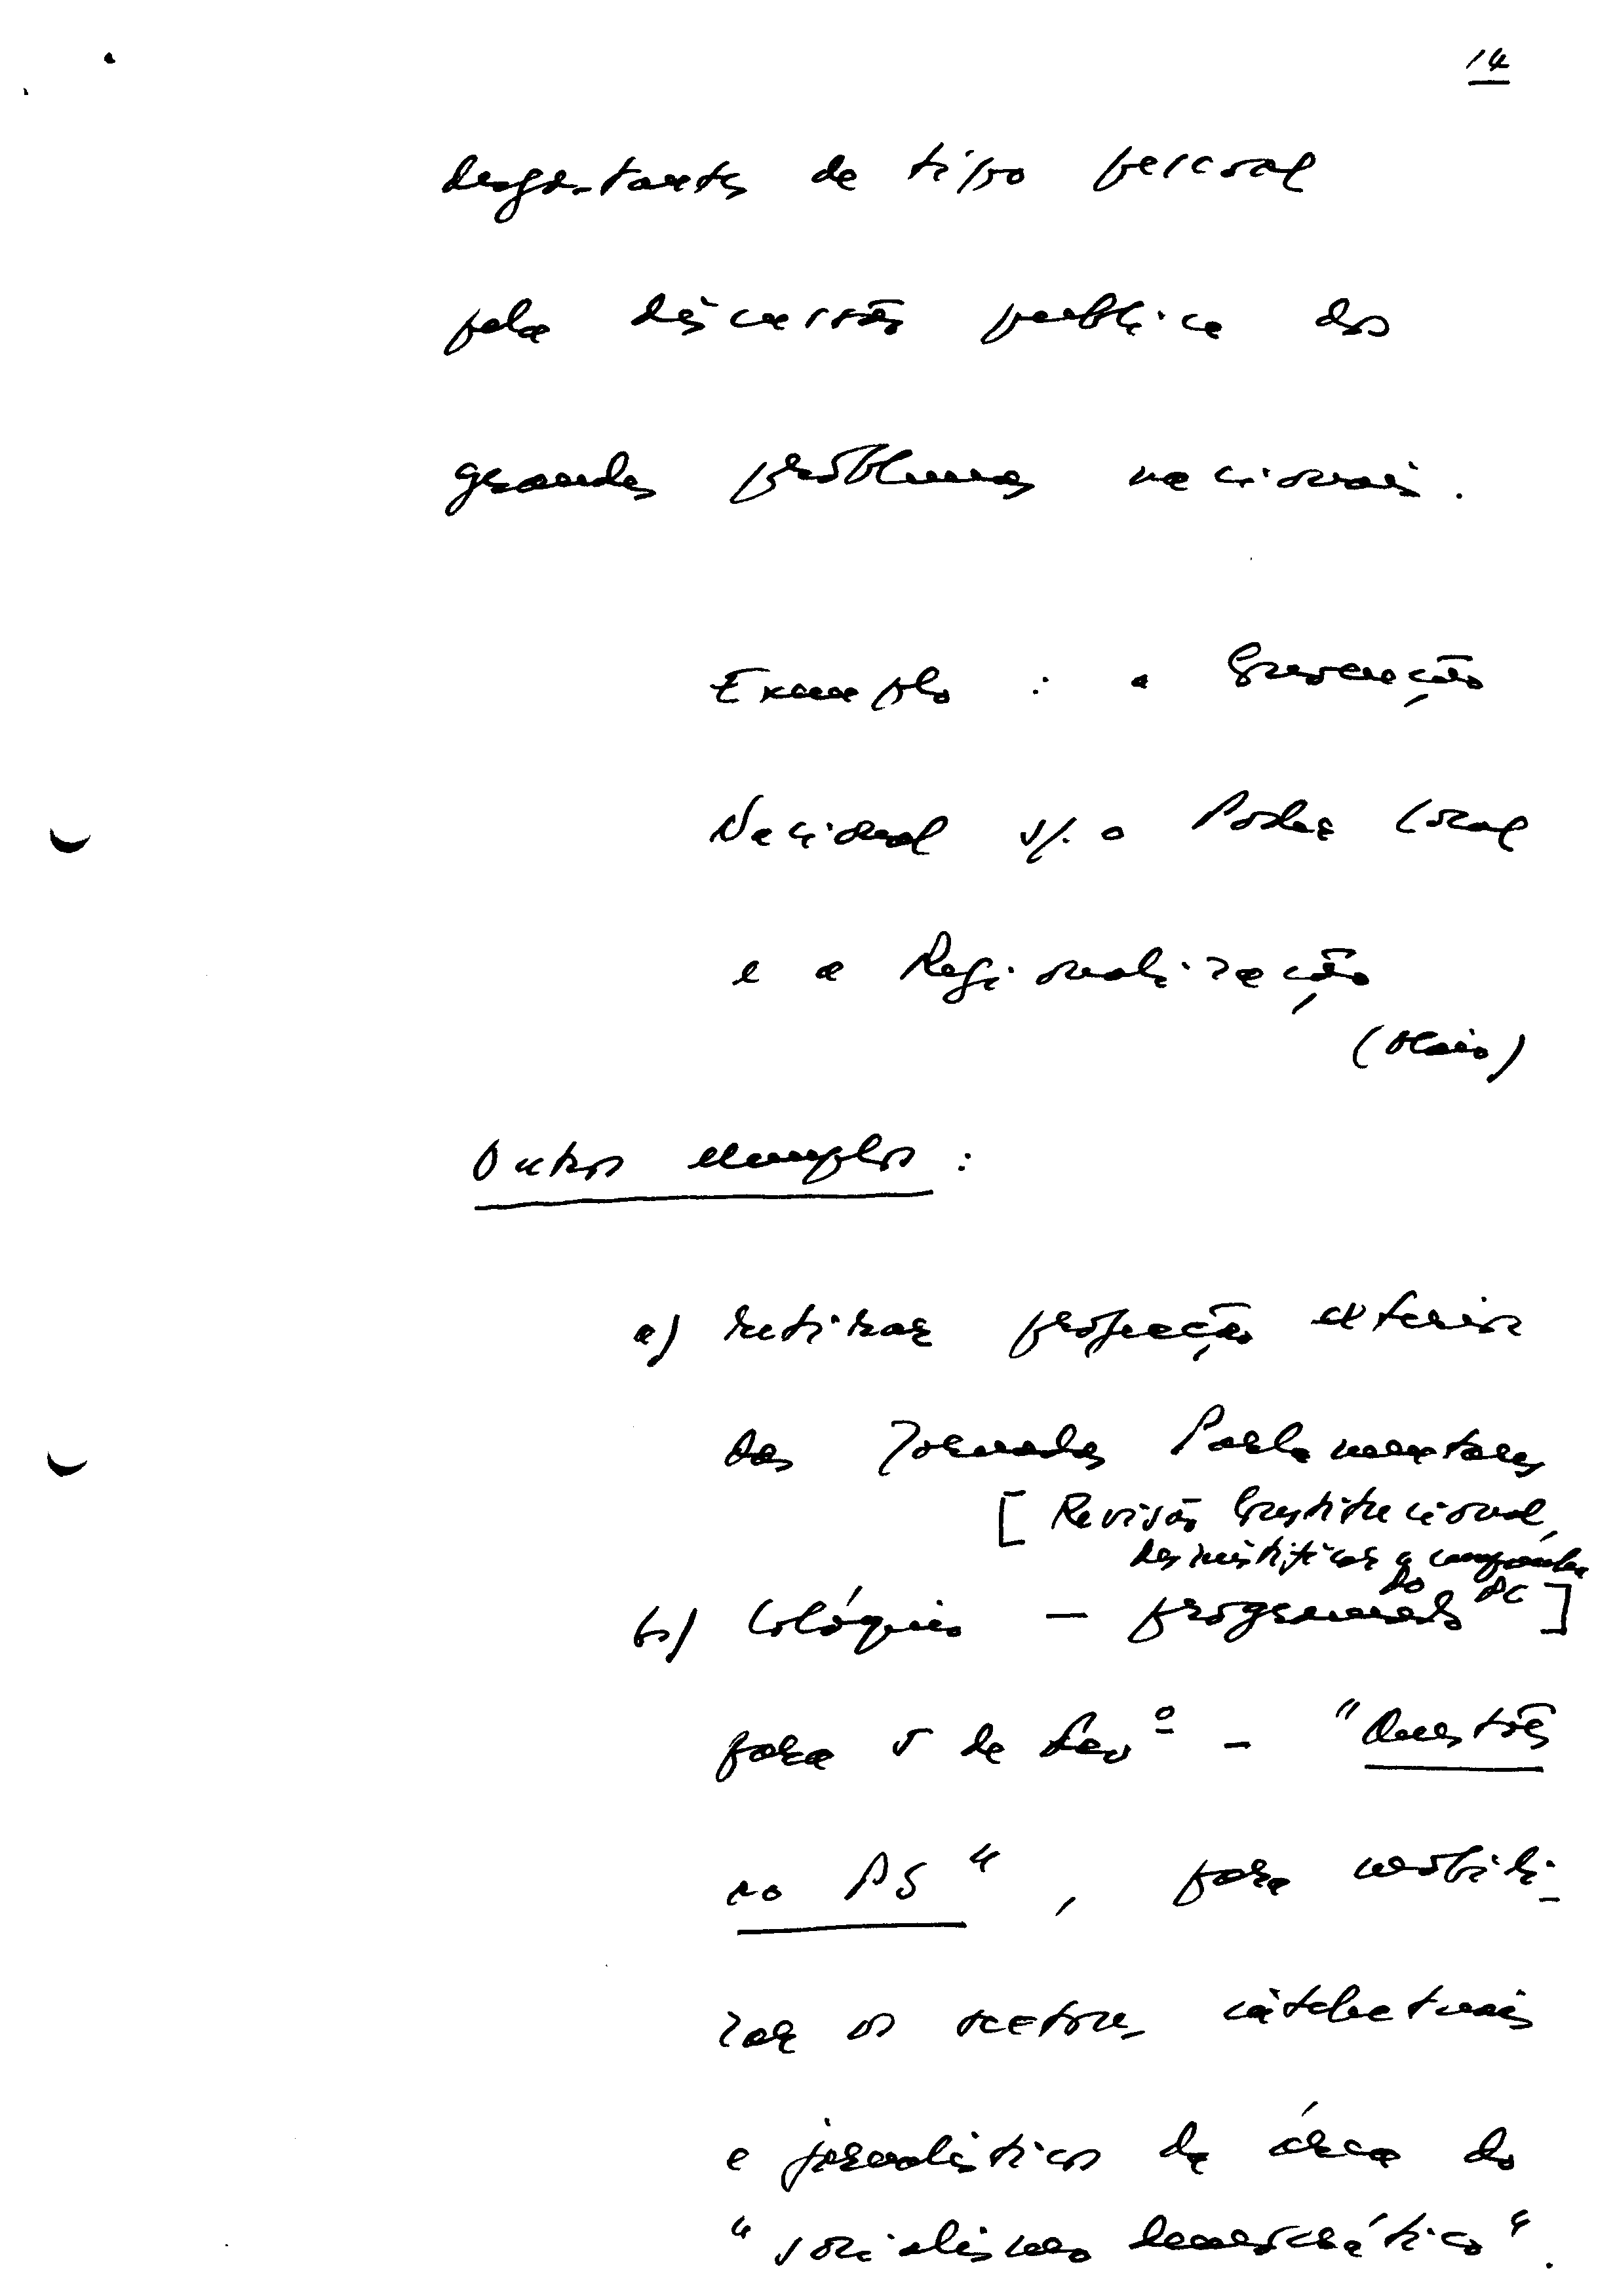 14
desgastantes de tipo pessoal
pela discussão pública dos
grandes problemas nacionais.
Exemplo : a Convenção
Nacional s/. o Poder Local
e a Regionalização
(Maio)
Outros exemplos :
a) retirar projecção exterior
das Jornadas Parlamentares
[ Revisão Constitucional,
desmistificar a campanha
do PC ]
b) Colóquio — programado
para 5 de Fevº – "Questões
no PS", para mobili-
zar os sectores intelectuais
e jornalísticos da área do
"socialismo democrático".